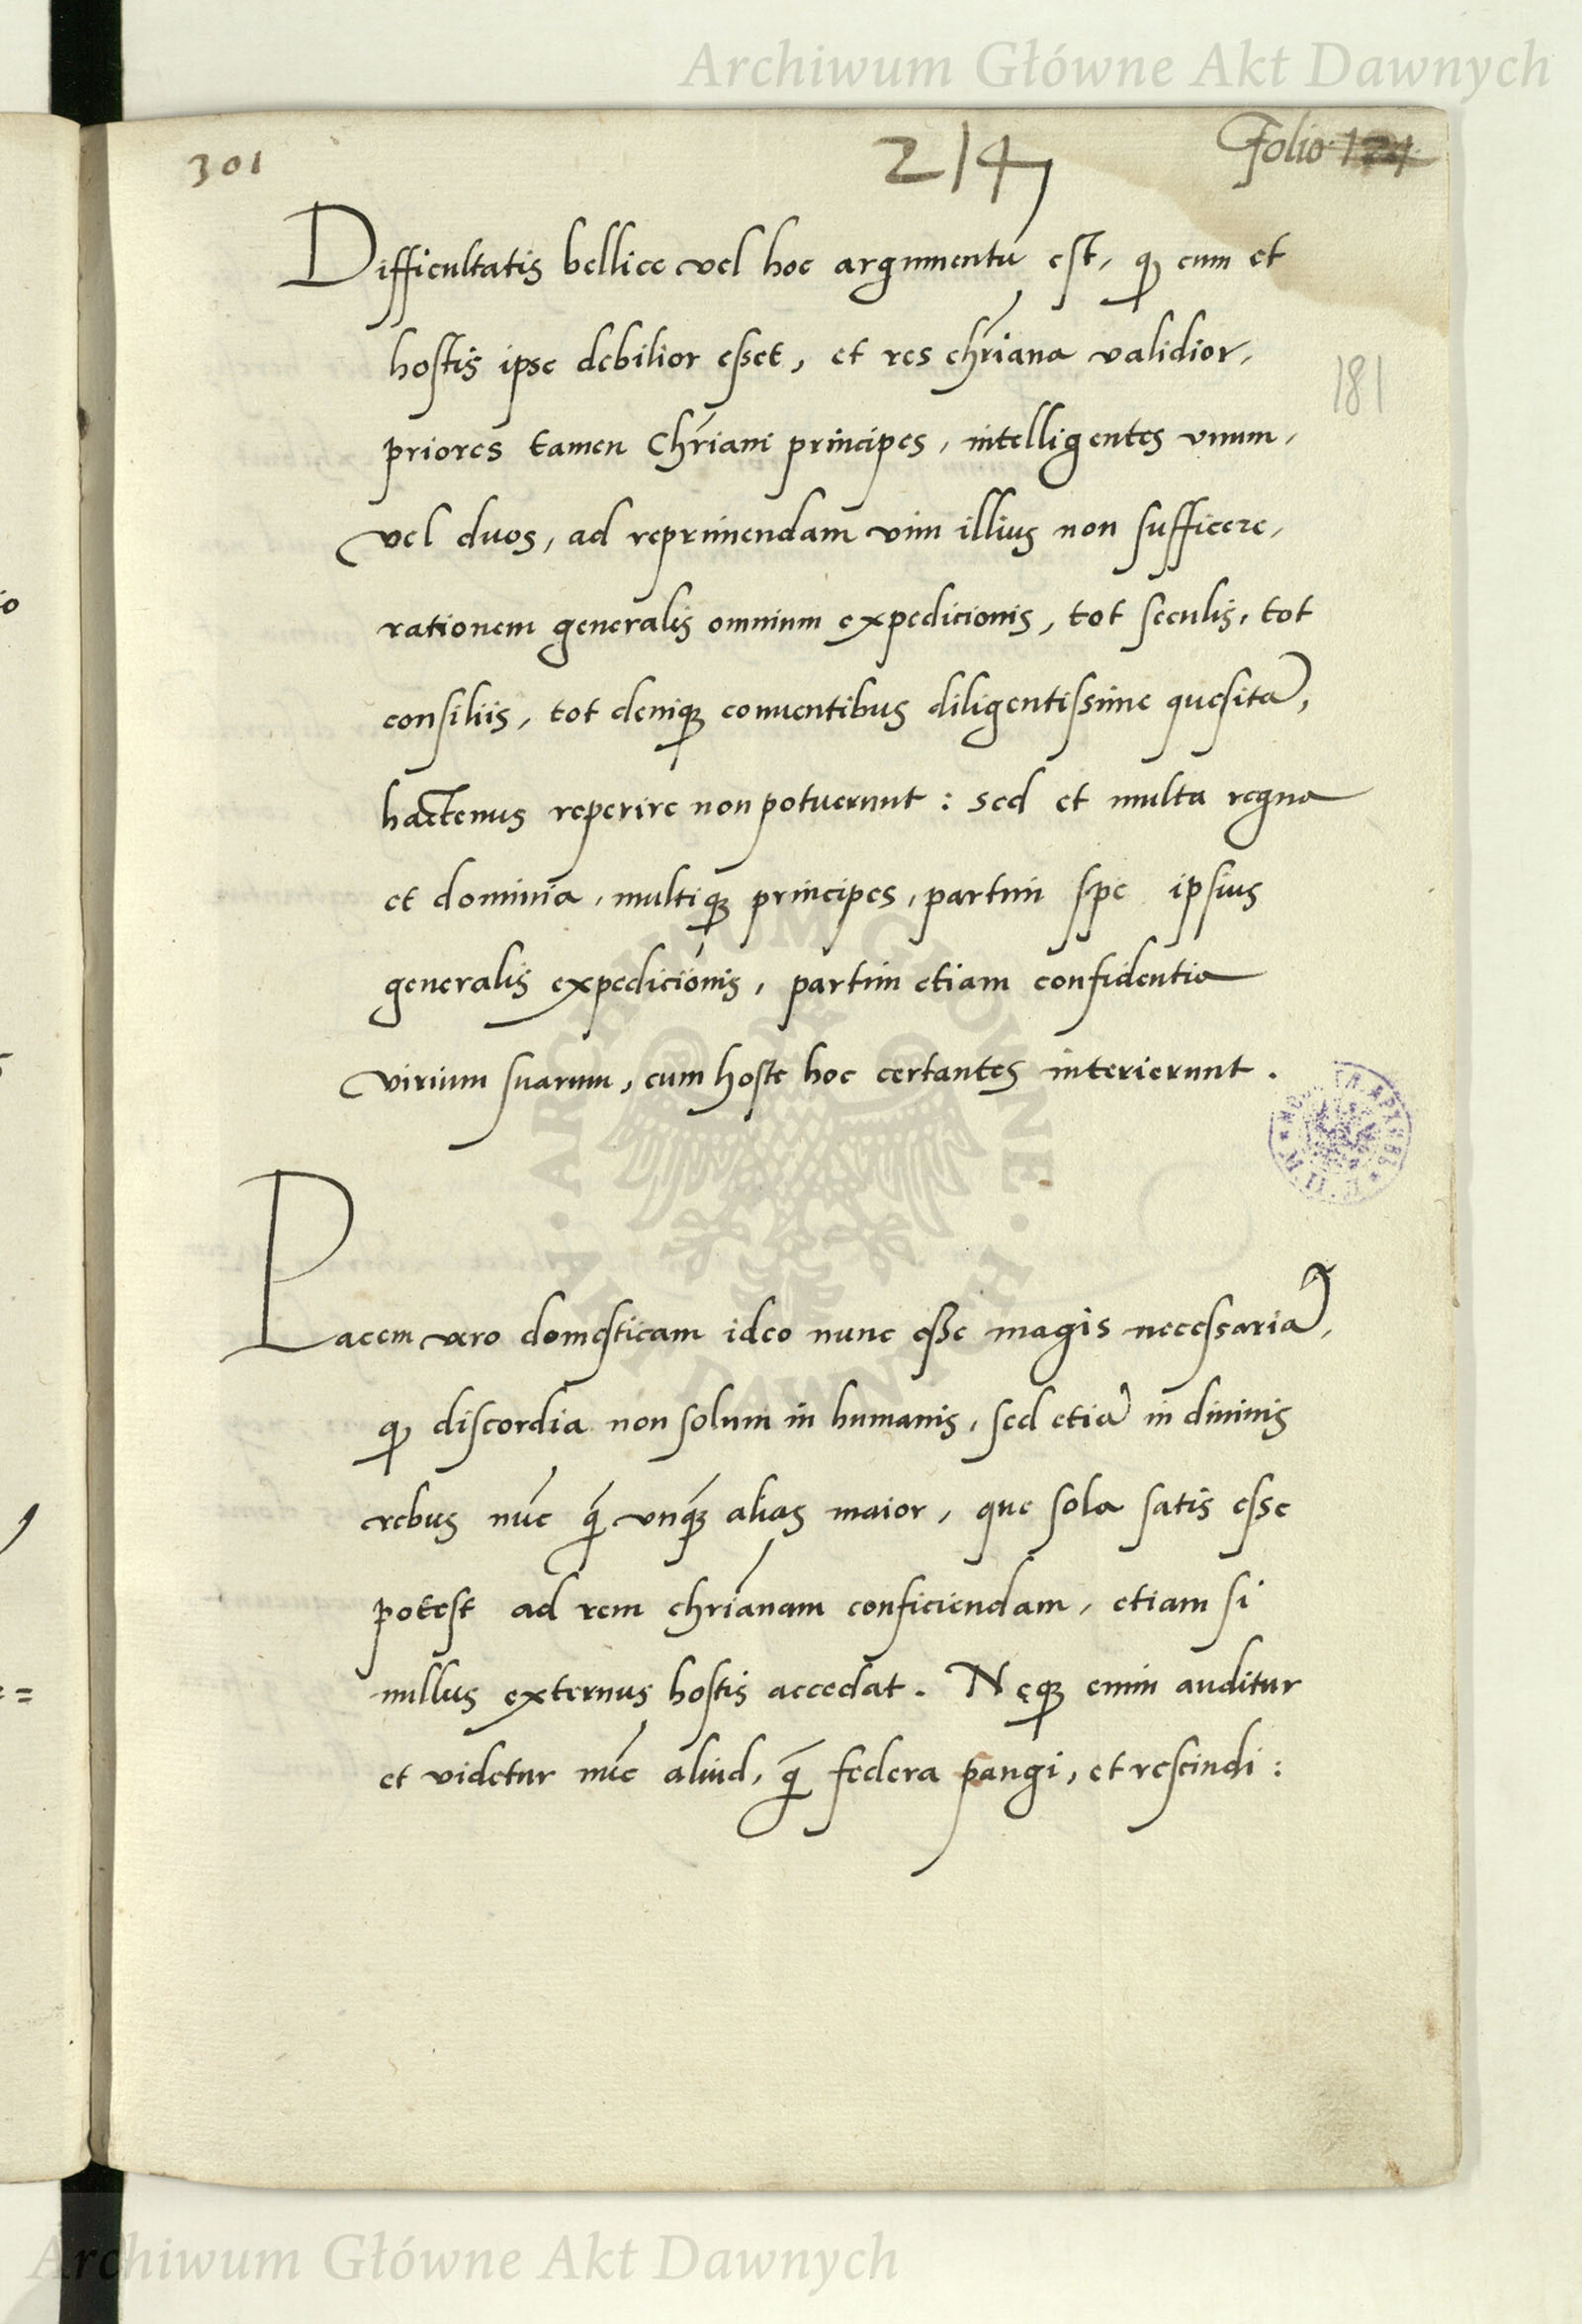 Archiwum Główne Akt Dawnych
301
214
Folio 124
Difficultatis bellice vel hoc argumentũ est, ꝙ cum et
hostis ipse debilior esset, et res chr̃iana validior,
181
priores tamen Chr̃iani principes, intelligentes vnum,
vel duos, ad reprimendam vim illius non sufficere,
rationem generalis omnium expedicionis, tot seculis, tot
consiliis, tot deniqꝫ conuentibus diligentissime quesitã,
hactenus reperire non potuerunt: sed et multa regna
et dominia, multiqꝫ principes, partim spe ipsius
generalis expedicionis, partim etiam confidentia
virium suarum, cum hoste hoc certantes interierunt.
Pacem vero domesticam ideo nunc esse magis necessariã,
ꝙ discordia non solum in humanis, sed etiã in diuinis
rebus nũc q̃ vnqꝫ alias maior, que sola satis esse
potest ad rem chr̃ianam conficiendam, etiam si
nullus externus hostis accedat. Nęqꝫ enim auditur
et videtur nũc aliud, q̃ federa pangi, et rescindi:
ARCHIWUM GŁÓWNE
AKT DAWNYCH
Archiwum Główne Akt Dawnych